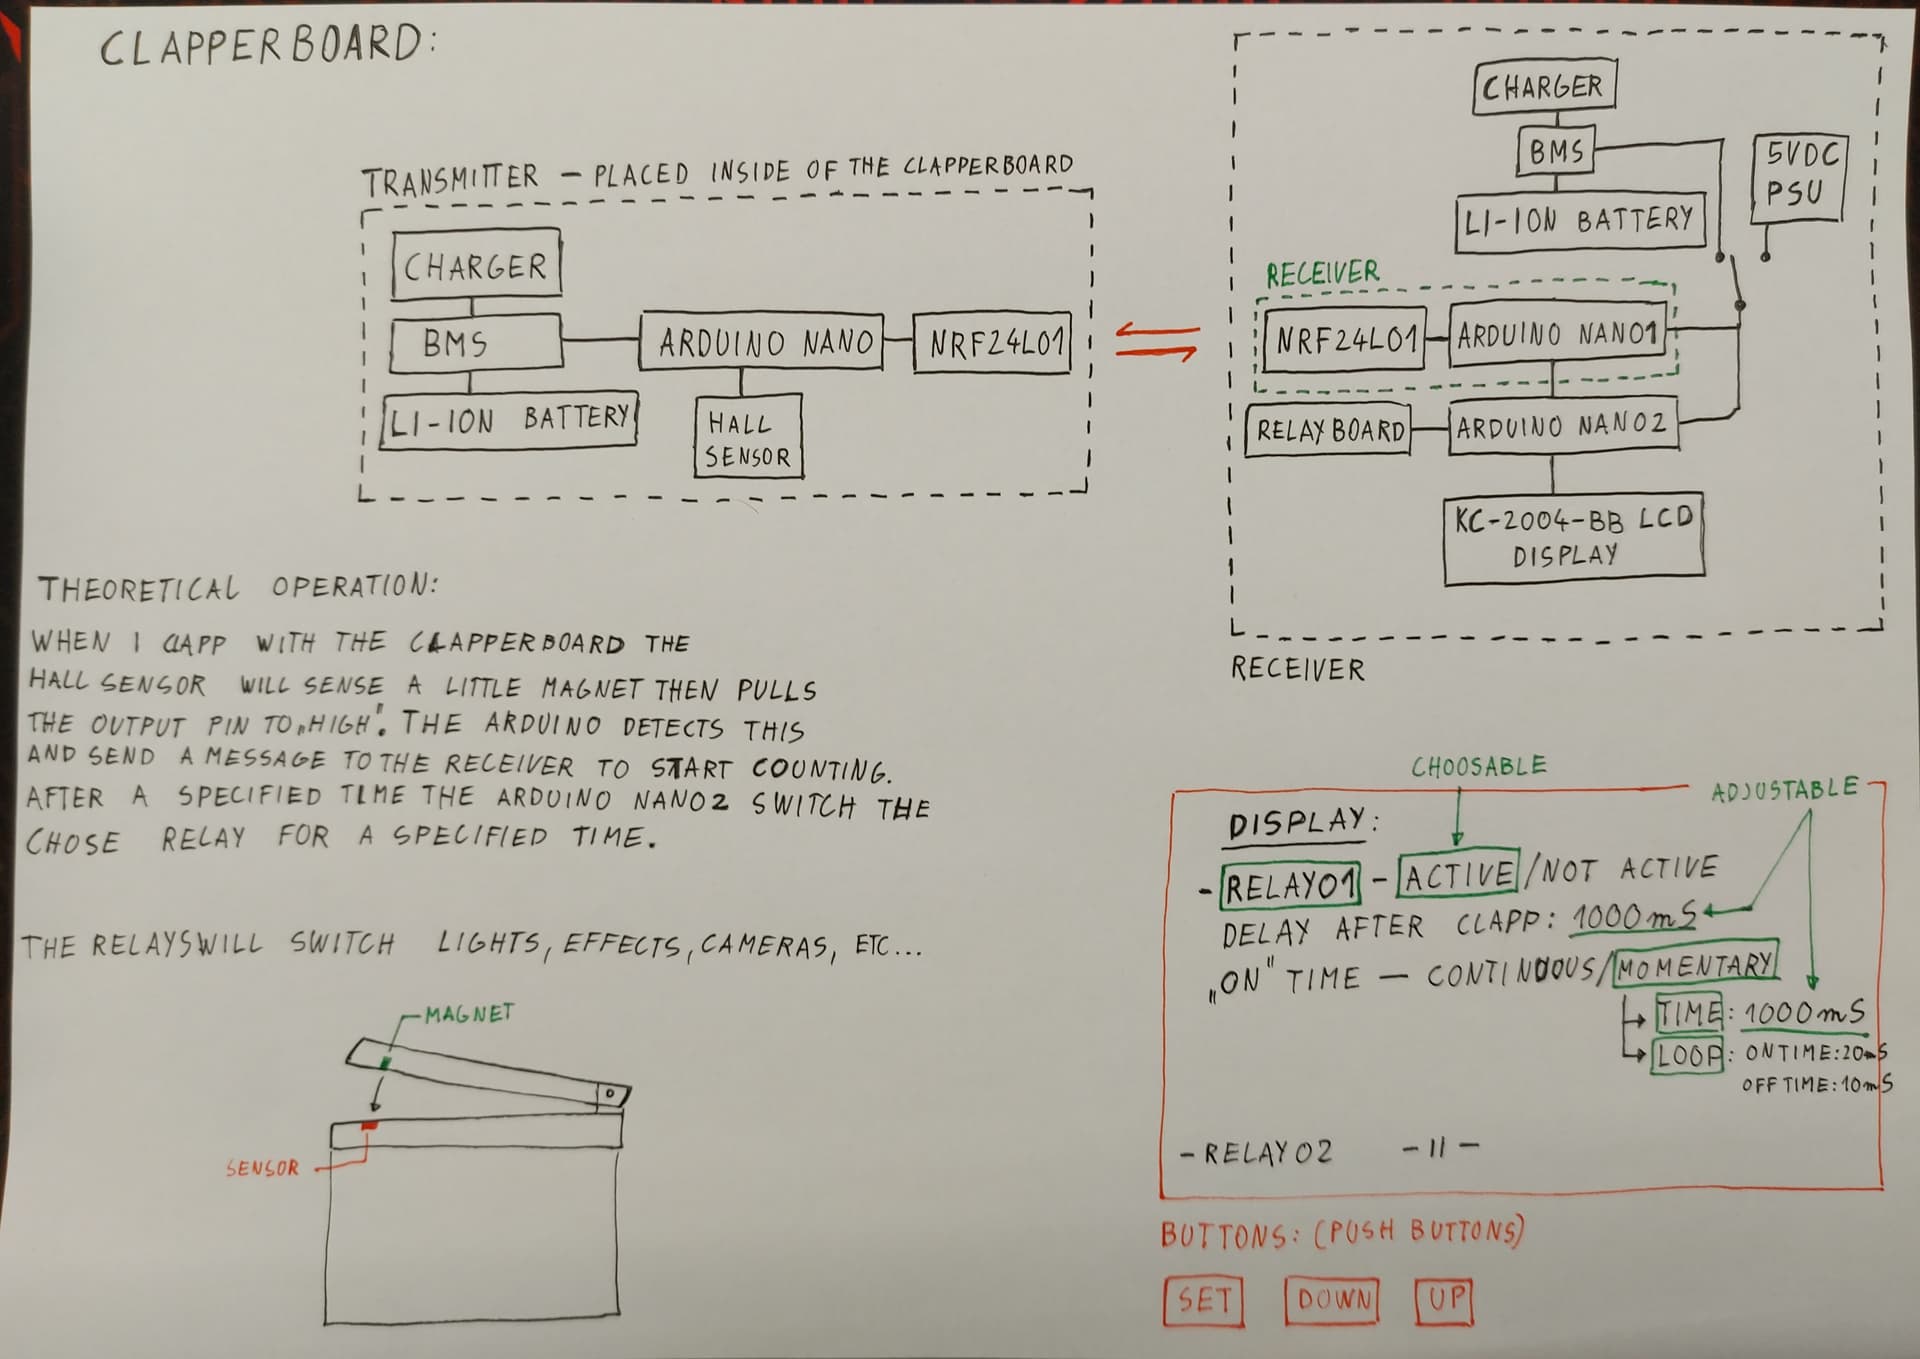 CLAPPERBOARD:
TRANSMITTER - PLACED INSIDE OF THE CLAPPERBOARD
CHARGER
BMS
LI-ION BATTERY
ARDUINO NANO
NRF24L01
HALL
SENSOR
CHARGER
BMS
LI-ION BATTERY
5VDC
PSU
RECEIVER
NRF24L01
ARDUINO NANO1
RELAY BOARD
ARDUINO NANO2
KC-2004-BB LCD
DISPLAY
RECEIVER
THEORETICAL OPERATION:
WHEN I CLAPP WITH THE CLAPPERBOARD THE
HALL SENSOR WILL SENSE A LITTLE MAGNET THEN PULLS
THE OUTPUT PIN TO „HIGH". THE ARDUINO DETECTS THIS
AND SEND A MESSAGE TO THE RECEIVER TO START COUNTING.
AFTER A SPECIFIED TIME THE ARDUINO NANO2 SWITCH THE
CHOSE RELAY FOR A SPECIFIED TIME.
THE RELAYS WILL SWITCH LIGHTS, EFFECTS, CAMERAS, ETC...
MAGNET
SENSOR
CHOOSABLE
ADJUSTABLE
DISPLAY:
- RELAY01 - ACTIVE/NOT ACTIVE
DELAY AFTER CLAPP: 1000mS
„ON" TIME - CONTINUOUS/MOMENTARY
TIME: 1000mS
LOOP: ON TIME:20mS
OFF TIME:10mS
- RELAY02 -11-
BUTTONS: (PUSH BUTTONS)
SET DOWN UP